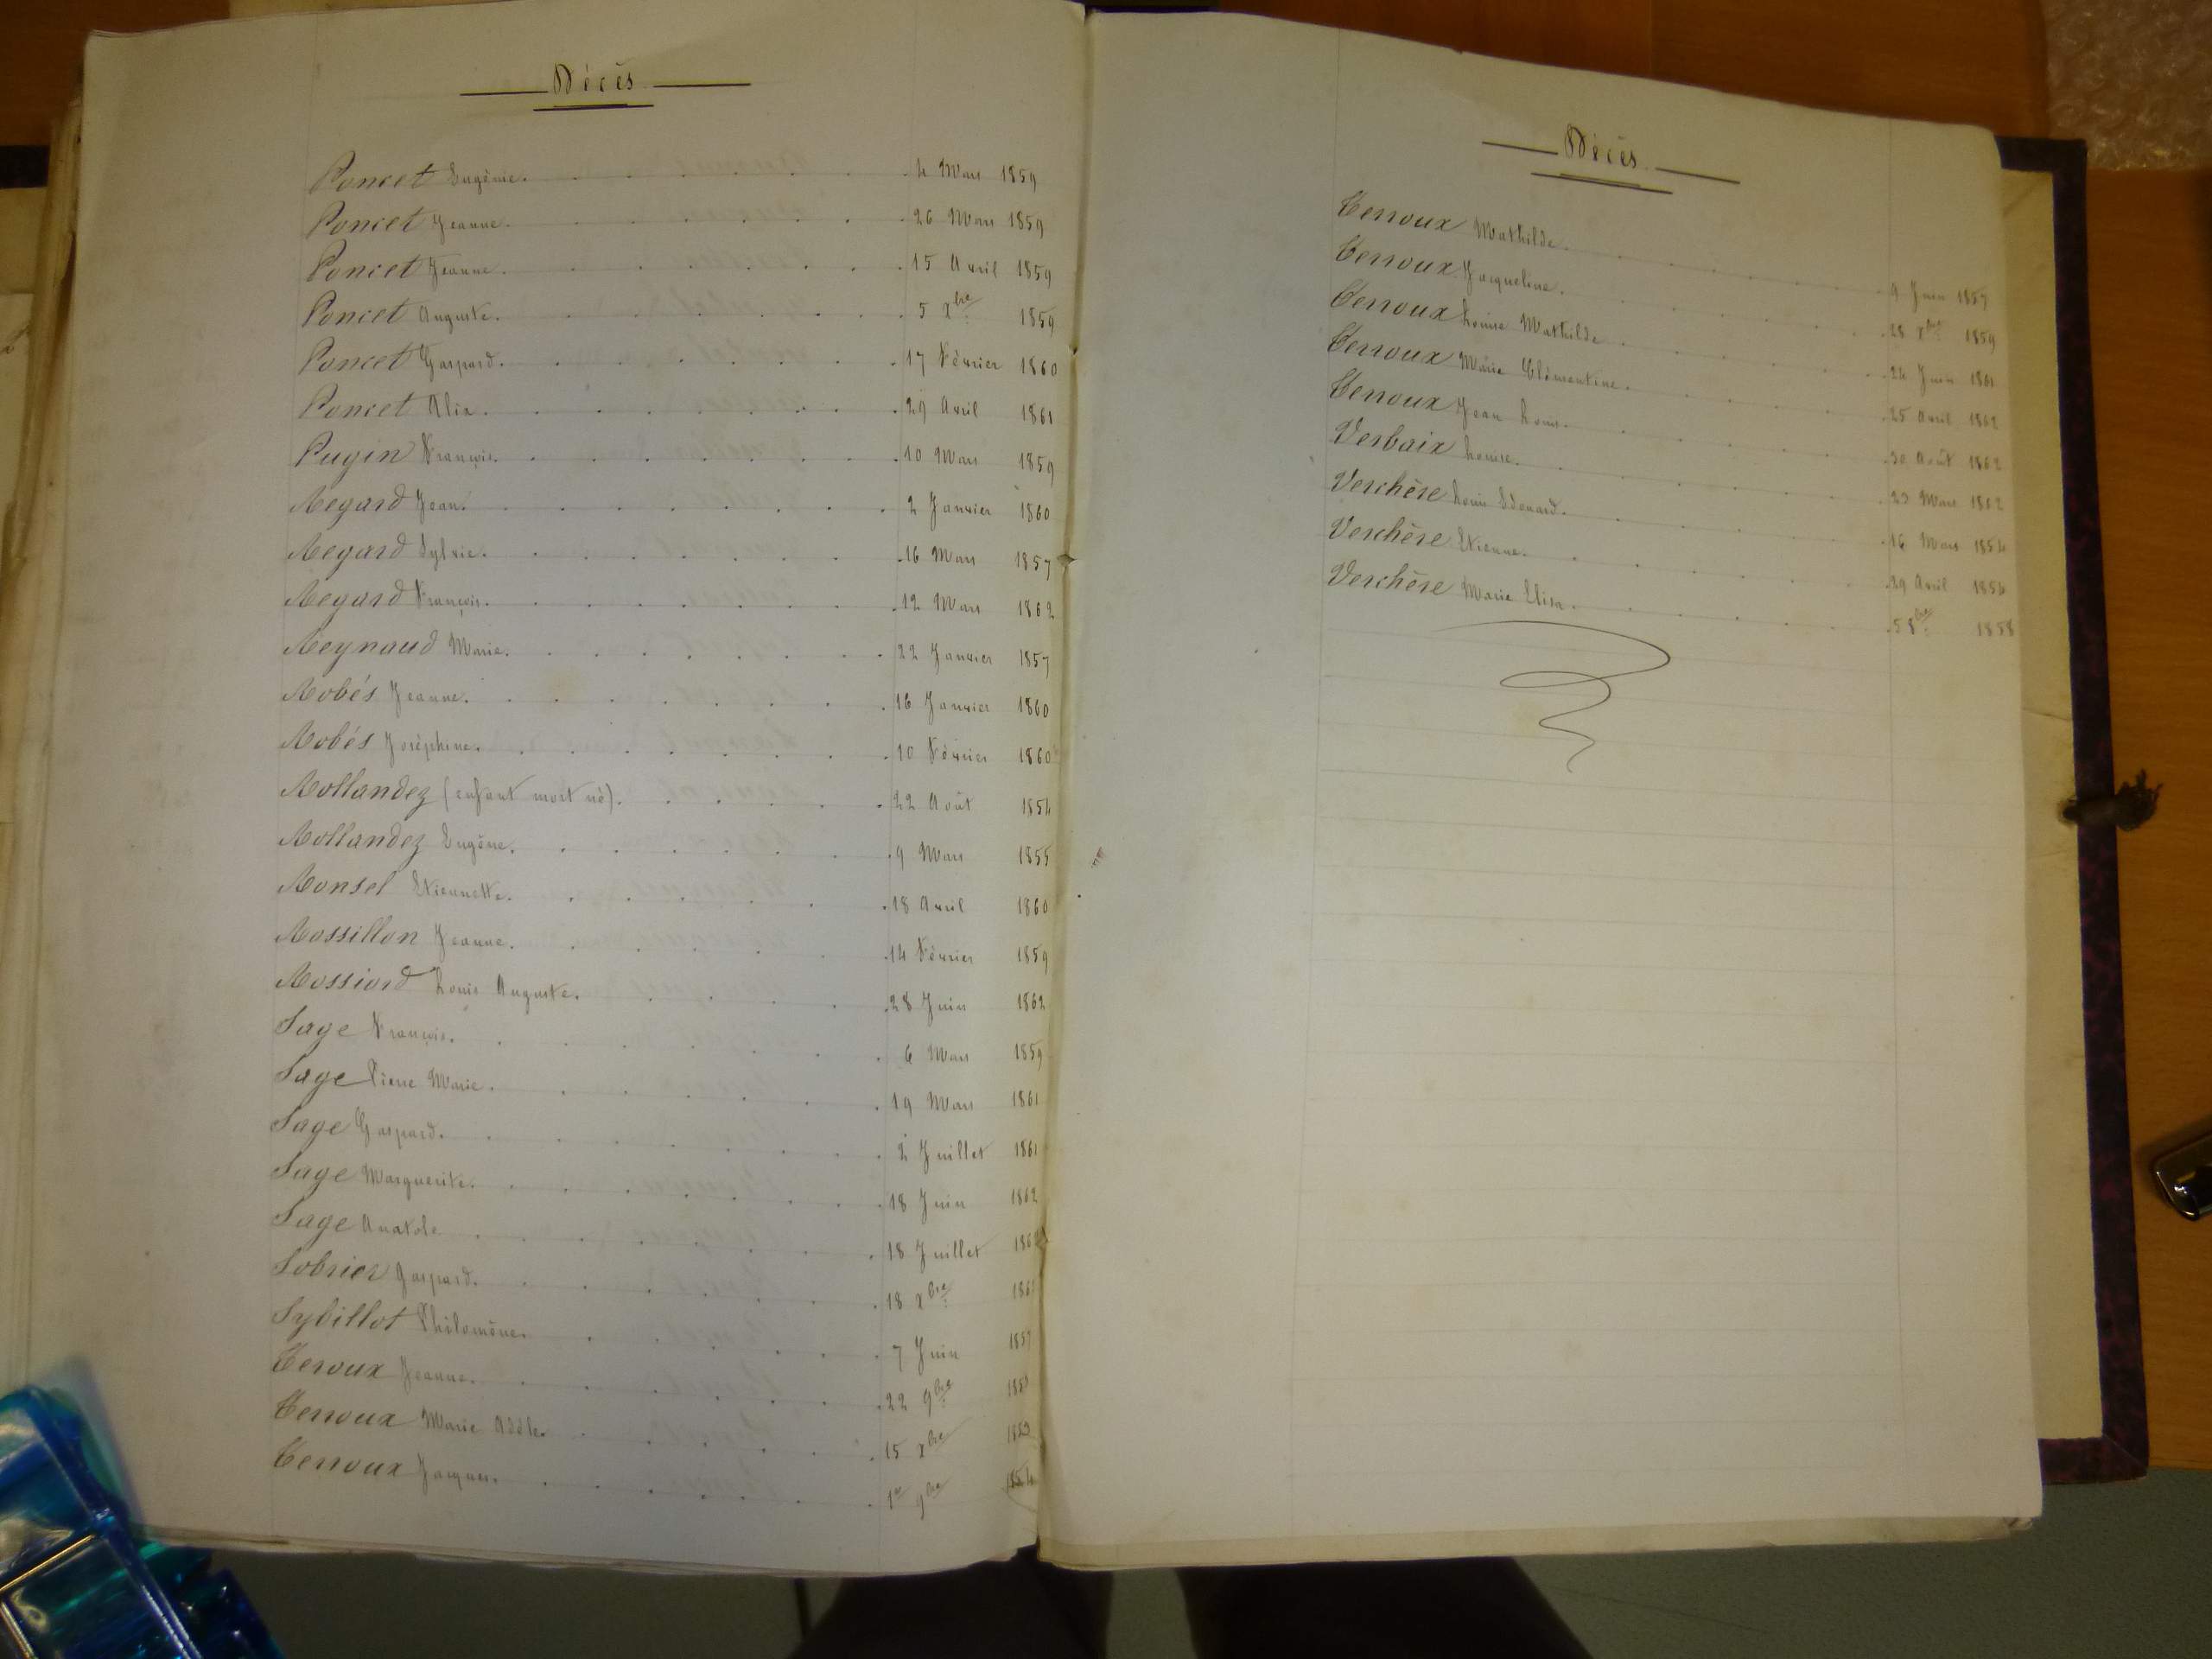 Décès
Poncet Eugénie. 4 Mars 1859
Poncet Jeanne. 26 Mars 1859
Poncet Jeanne. 15 Avril 1859
Poncet Auguste. 5 Xbre 1859
Poncet Gaspard. 17 Février 1860
Poncet Alix. 29 Avril 1861
Pugin François. 10 Mars 1859
Regard Jean. 2 Janvier 1860
Regard Sylvie. 16 Mars 1857
Regard François. 12 Mars 1862
Reynaud Marie. 22 Janvier 1857
Robés Jeanne. 16 Janvier 1860
Robés Joséphine. 10 Février 1860
Rollandez (enfant mort né). 22 Août 1854
Rollandez Eugène. 9 Mars 1855
Ronsel Etiennette. 18 Avril 1860
Rossillon Jeanne. 14 Février 1859
Rossiord Louis Auguste. 28 Juin 1862
Sage François. 6 Mars 1859
Sage Pierre Marie. 19 Mars 1861
Sage Gaspard. 2 Juillet 1861
Sage Marguerite. 18 Juin 1862
Sage Anatole 18 Juillet
Sobrier Gaspard. 18 Xbre 1861
Sybillot Philomène. 7 Juin 1857
Terroux Jeanne. 22 9bre
Terroux Marie Adèle. 15 Xbre
Terroux Jacques. 1er 9bre 1854
Décès
Terroux Mathilde. 9 Juin 1857
Terroux Jacqueline. 28 Xbre 1859
Terroux Louise Mathilde 24 Juin 1861
Terroux Marie Clémentine. 25 Avril 1862
Terroux Jean Louis. 30 Août 1862
Verbaix Louise. 23 Mars 1862
Verchère Louis Edouard. 16 Mars 1854
Verchère Etienne. 29 Avril 1854
Verchère Marie Elisa. 5 8bre 1858